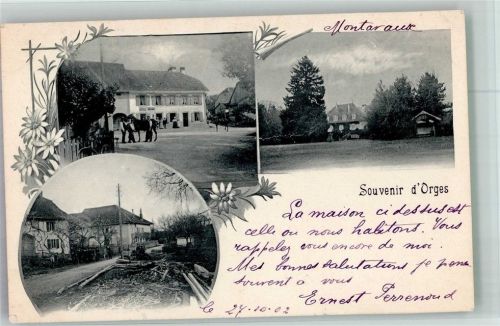 Montavaux
Souvenir d'Orges
La maison ci dessus est
celle ou nous habitons. Vous
rappelez vous encore de moi.
Mes bonnes salutations je pense
souvent à vous
Ernest Perrenoud
le 27.10.02